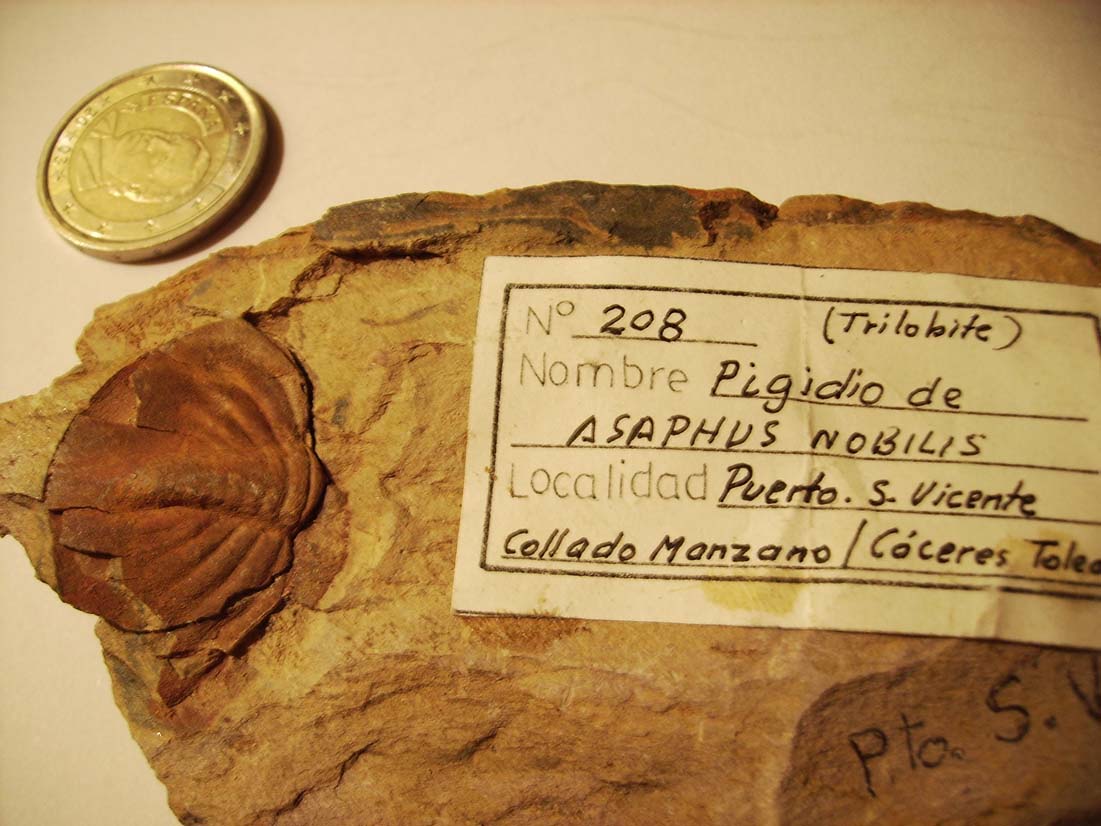 ESPAÑA
Nº 208 (Trilobite)
Nombre Pigidio de
ASAPHUS NOBILIS
Localidad Puerto. S. Vicente
Collado Manzano / Cáceres Toled
Pto. S. V